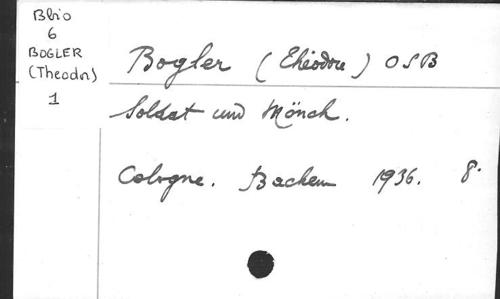 Bbio
6
BOGLER
(Theodor)
1
Bogler (Theodore) OSB
Soldat und Mönch.
Cologne. Bachem 1936. 8.